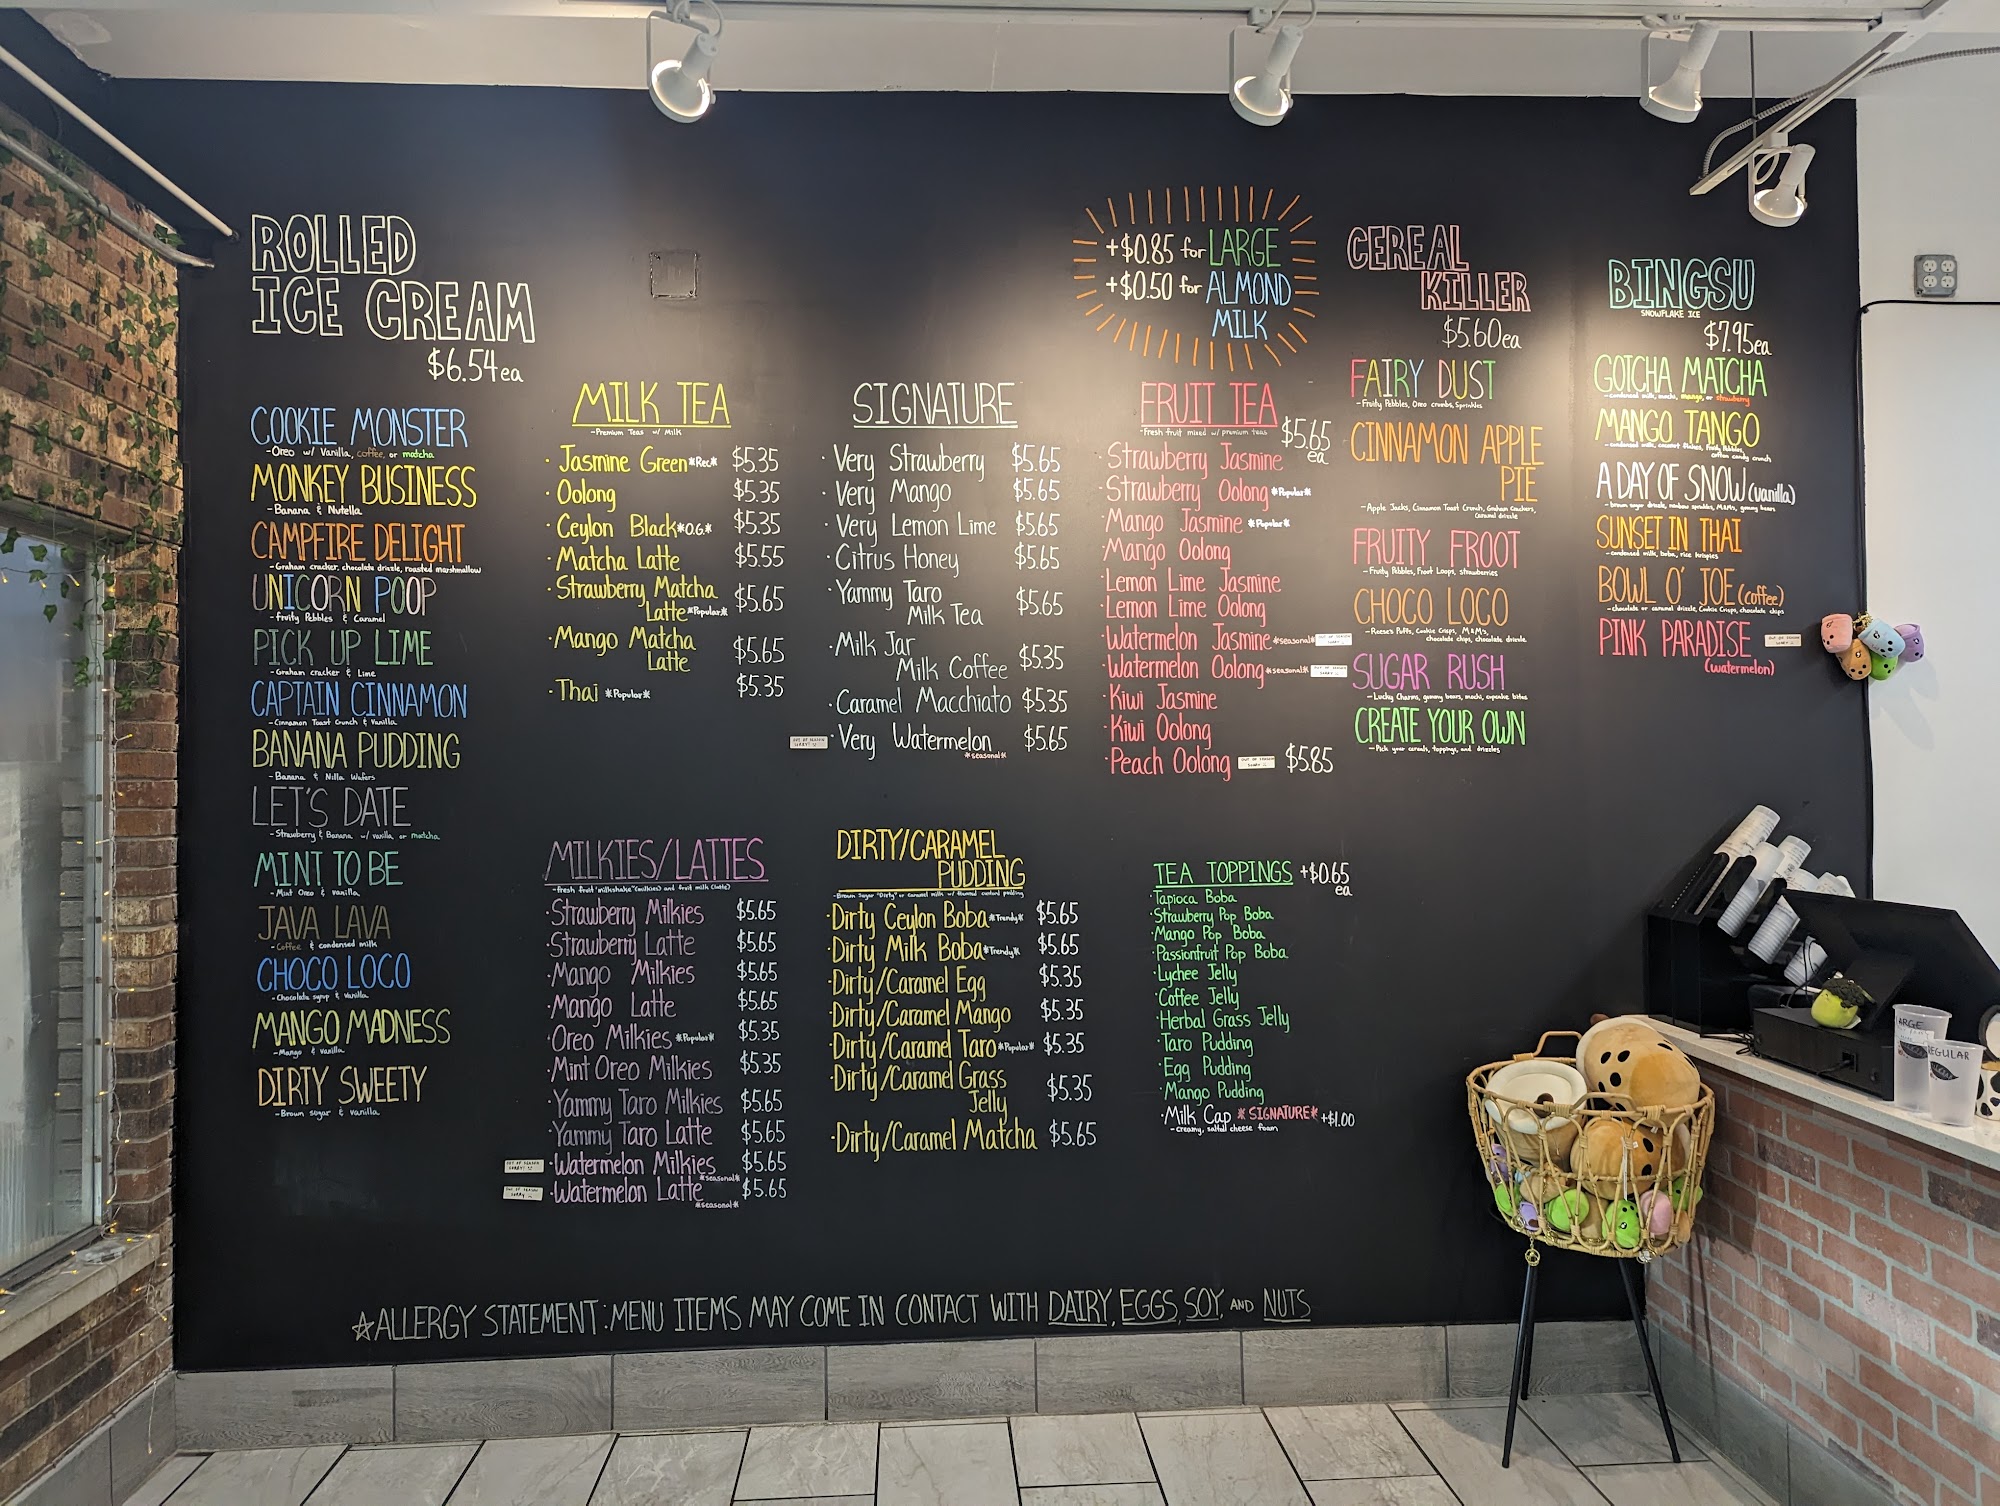 ROLLED
ICE CREAM
$6.54 ea
COOKIE MONSTER
-Oreo w/ Vanilla, coffee, or matcha
MONKEY BUSINESS
-Banana & Nutella
CAMPFIRE DELIGHT
-Graham cracker, chocolate drizle, roasted marshmallow
UNICORN POOP
-fruity Pebbles & Caramel
PICK UP LIME
-Graham cracker & Lime
CAPTAIN CINNAMON
-Cinnamon Toast Crunch & Vanilla
BANANA PUDDING
-Banana & Nilla Wafers
LET'S DATE
-Strawberry & Banana w/ vanilla or matcha
MINT TO BE
-Mint Oreo & vanilla
JAVA LAVA
-Coffee & condensed milk
CHOCO LOCO
-Chocolate syrup & Vanilla
MANGO MADNESS
-Mango & vanilla
DIRTY SWEETY
-Brown sugar & vanilla
MILK TEA
-Premium Teas w/ Milk
·Jasmine Green *Rec* $5.35
·Oolong $5.35
·Ceylon Black *O.G.* $5.35
·Matcha Latte $5.55
·Strawberry Matcha
Latte *Popular* $5.65
·Mango Matcha
Latte $5.65
·Thai *Popular* $5.35
SIGNATURE
·Very Strawberry $5.65
·Very Mango $5.65
·Very Lemon Lime $5.65
·Citrus Honey $5.65
·Yammy Taro
Milk Tea $5.65
·Milk Jar
Milk Coffee $5.35
·Caramel Macchiato $5.35
OUT OF SEASON
SORRY! ·Very Watermelon $5.65
*seasonal*
+$0.85 for LARGE
+$0.50 for ALMOND
MILK
FRUIT TEA
-Fresh fruit mixed w/ premium teas
$5.65
ea
·Strawberry Jasmine
·Strawberry Oolong *Popular*
·Mango Jasmine *Popular*
·Mango Oolong
·Lemon Lime Jasmine
·Lemon Lime Oolong
·Watermelon Jasmine *seasonal* OUT OF SEASON
·Watermelon Oolong *seasonal* OUT OF SEASON
·Kiwi Jasmine
·Kiwi Oolong
·Peach Oolong OUT OF SEASON
SORRY $5.85
CEREAL
KILLER
$5.60 ea
FAIRY DUST
-Fruity Pebbles, Oreo crumbs, Sprinkles
CINNAMON APPLE
PIE
-Apple Jacks, Cinnamon Toast Crunch, Graham Crackers,
caramel drizzle
FRUITY FROOT
-Fruity Pebbles, Froot Loops, strawberries
CHOCO LOCO
-Reese's Puffs, Cookie Crisps, M&M's,
chocolate chips, chocolate drizzle
SUGAR RUSH
-Lucky Charms, gummy bears, mochi, cupcake bites
CREATE YOUR OWN
-Pick your cereals, toppings, and drizzles
BINGSU
SNOWFLAKE ICE
$7.95 ea
GOTCHA MATCHA
-condensed milk, mochi, mango, or strawberry
MANGO TANGO
-condensed milk, coconut flakes, Fruity Pebbles,
cotton candy crunch
A DAY OF SNOW (vanilla)
-brown sugar drizzle, rainbow sprinkles, M&Ms, gummy bears
SUNSET IN THAI
-condensed milk, boba, rice krispies
BOWL O' JOE (coffee)
-chocolate or caramel drizzle, Cookie Crisps, chocolate chips
PINK PARADISE OUT OF SEASON
(watermelon)
MILKIES/LATTES
-fresh fruit "milkshake" (milkies) and fruit milk (latte)
·Strawberry Milkies $5.65
·Strawberry Latte $5.65
·Mango Milkies $5.65
·Mango Latte $5.65
·Oreo Milkies *Popular* $5.35
·Mint Oreo Milkies $5.35
·Yammy Taro Milkies $5.65
·Yammy Taro Latte $5.65
OUT OF SEASON
SORRY! ·Watermelon Milkies $5.65
*seasonal*
OUT OF SEASON
SORRY ·Watermelon Latte $5.65
*seasonal*
DIRTY/CARAMEL
PUDDING
-Brown Sugar "Dirty" or caramel milk w/ custard pudding
·Dirty Ceylon Boba *Trendy* $5.65
·Dirty Milk Boba *Trendy* $5.65
·Dirty/Caramel Egg $5.35
·Dirty/Caramel Mango $5.35
·Dirty/Caramel Taro *Popular* $5.35
·Dirty/Caramel Grass
Jelly $5.35
·Dirty/Caramel Matcha $5.65
TEA TOPPINGS +$0.65
ea
·Tapioca Boba
·Strawberry Pop Boba
·Mango Pop Boba
·Passionfruit Pop Boba
·Lychee Jelly
·Coffee Jelly
·Herbal Grass Jelly
·Taro Pudding
·Egg Pudding
·Mango Pudding
·Milk Cap *SIGNATURE* +$1.00
-creamy, salted cheese foam
ARGE
REGULAR
☆ALLERGY STATEMENT: MENU ITEMS MAY COME IN CONTACT WITH DAIRY, EGGS, SOY, AND NUTS